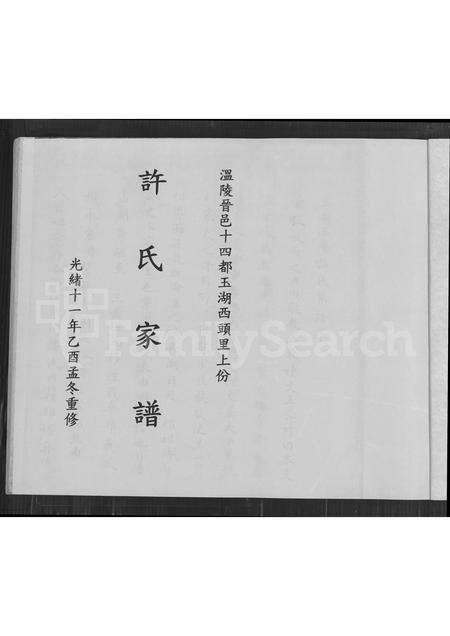 溫陵晉邑十四都玉湖西頭里上份
許氏家譜
光緒十一年乙酉孟冬重修
FamilySearch